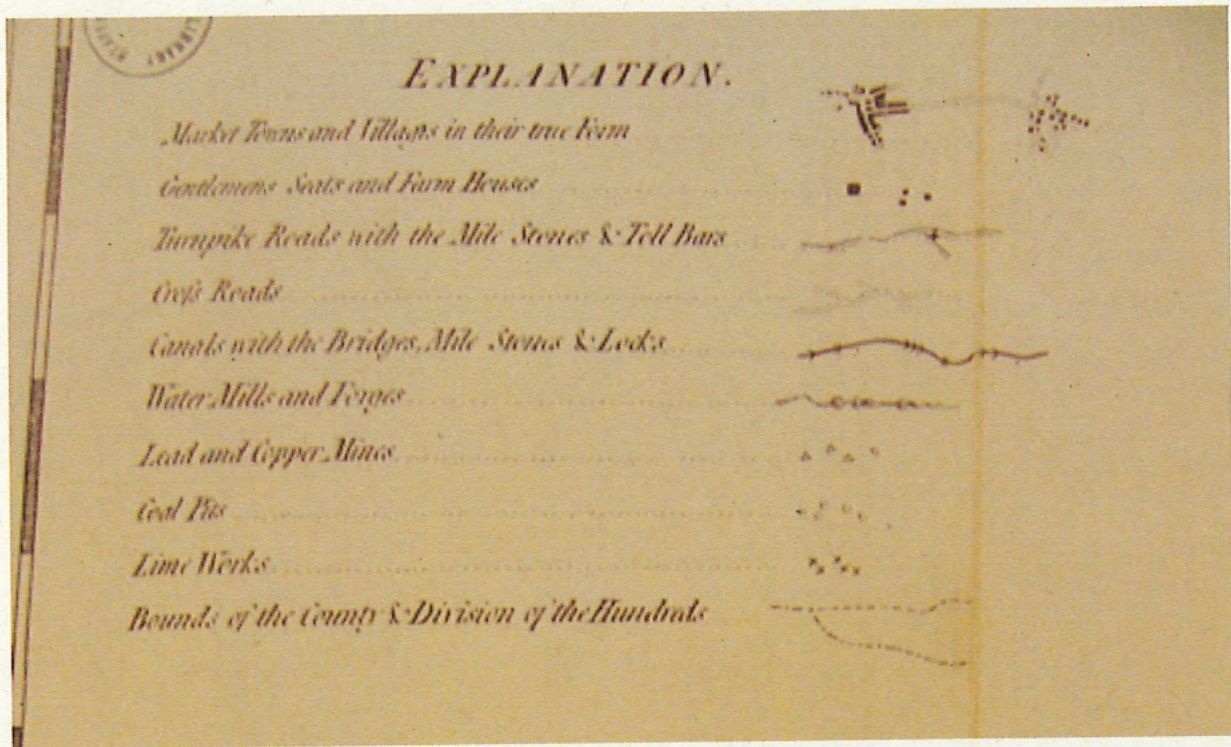 LIBRARY
EXPLANATION.
Market Towns and Villages in their true Form
Gentlemens Seats and Farm Houses
Turnpike Roads with the Mile Stones & Toll Bars
Croſs Roads
Canals with the Bridges, Mile Stones & Locks
Water Mills and Forges
Lead and Copper Mines
Coal Pits
Lime Works
Bounds of the County & Division of the Hundreds